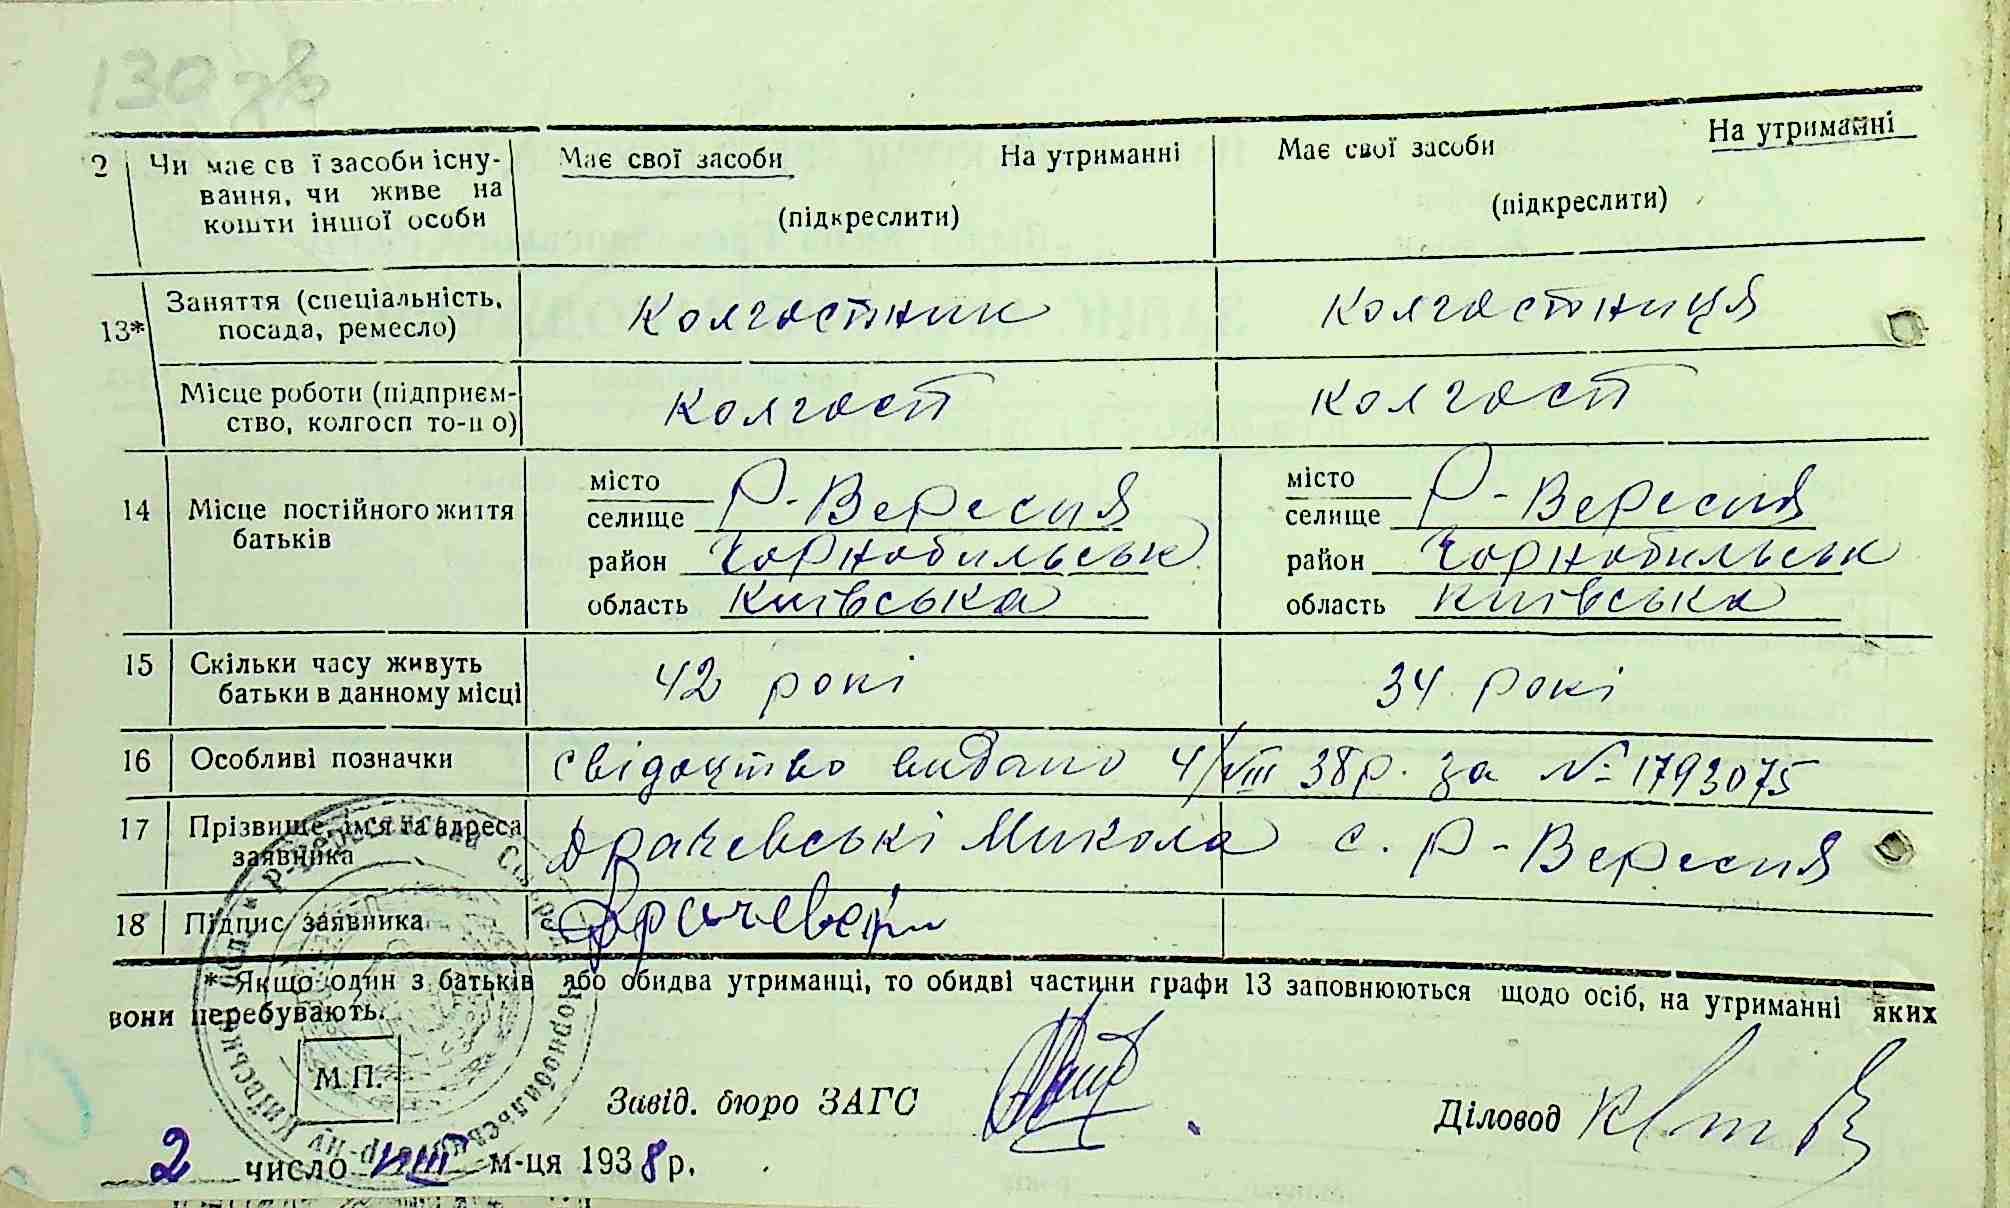 130
2 Чи має св ї засоби існу- Має свої засоби На утриманні Має свої засоби На утриманні
вання, чи живе на
кошти іншої особи (підкреслити) (підкреслити)
13* Заняття (спеціальність, Колгостник Колгостниця
посада, ремесло)
Місце роботи (підприєм- Колгост Колгост
ство, колгосп то-що)
14 Місце постійного життя місто Р-Вересня місто Р-Вересня
батьків селище селище
район Чорнобильськ район Чорнобильськ
область Київська область Київська
15 Скільки часу живуть 42 рокі 34 рокі
батьки в данному місці
16 Особливі позначки свідоцтво видано 4/VIII 38р. за № 1793075
17 Прізвище, ім'я та адреса Драчевські Микола с. Р-Вересня
заявника
18 Підпис заявника
* Якщо один з батьків або обидва утриманці, то обидві частини графи 13 заповнюються щодо осіб, на утриманні яких
вони перебувають.
М.П.
Завід. бюро ЗАГС Діловод
2 число VIII м-ця 1938р.